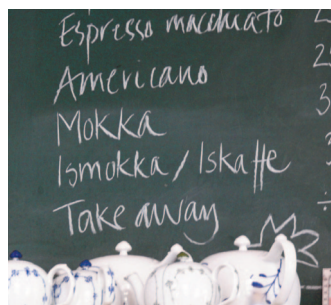 Espresso macchiato 2
Americano 2
Mokka 3
Ismokka / Iskaffe 3
Take away ÷